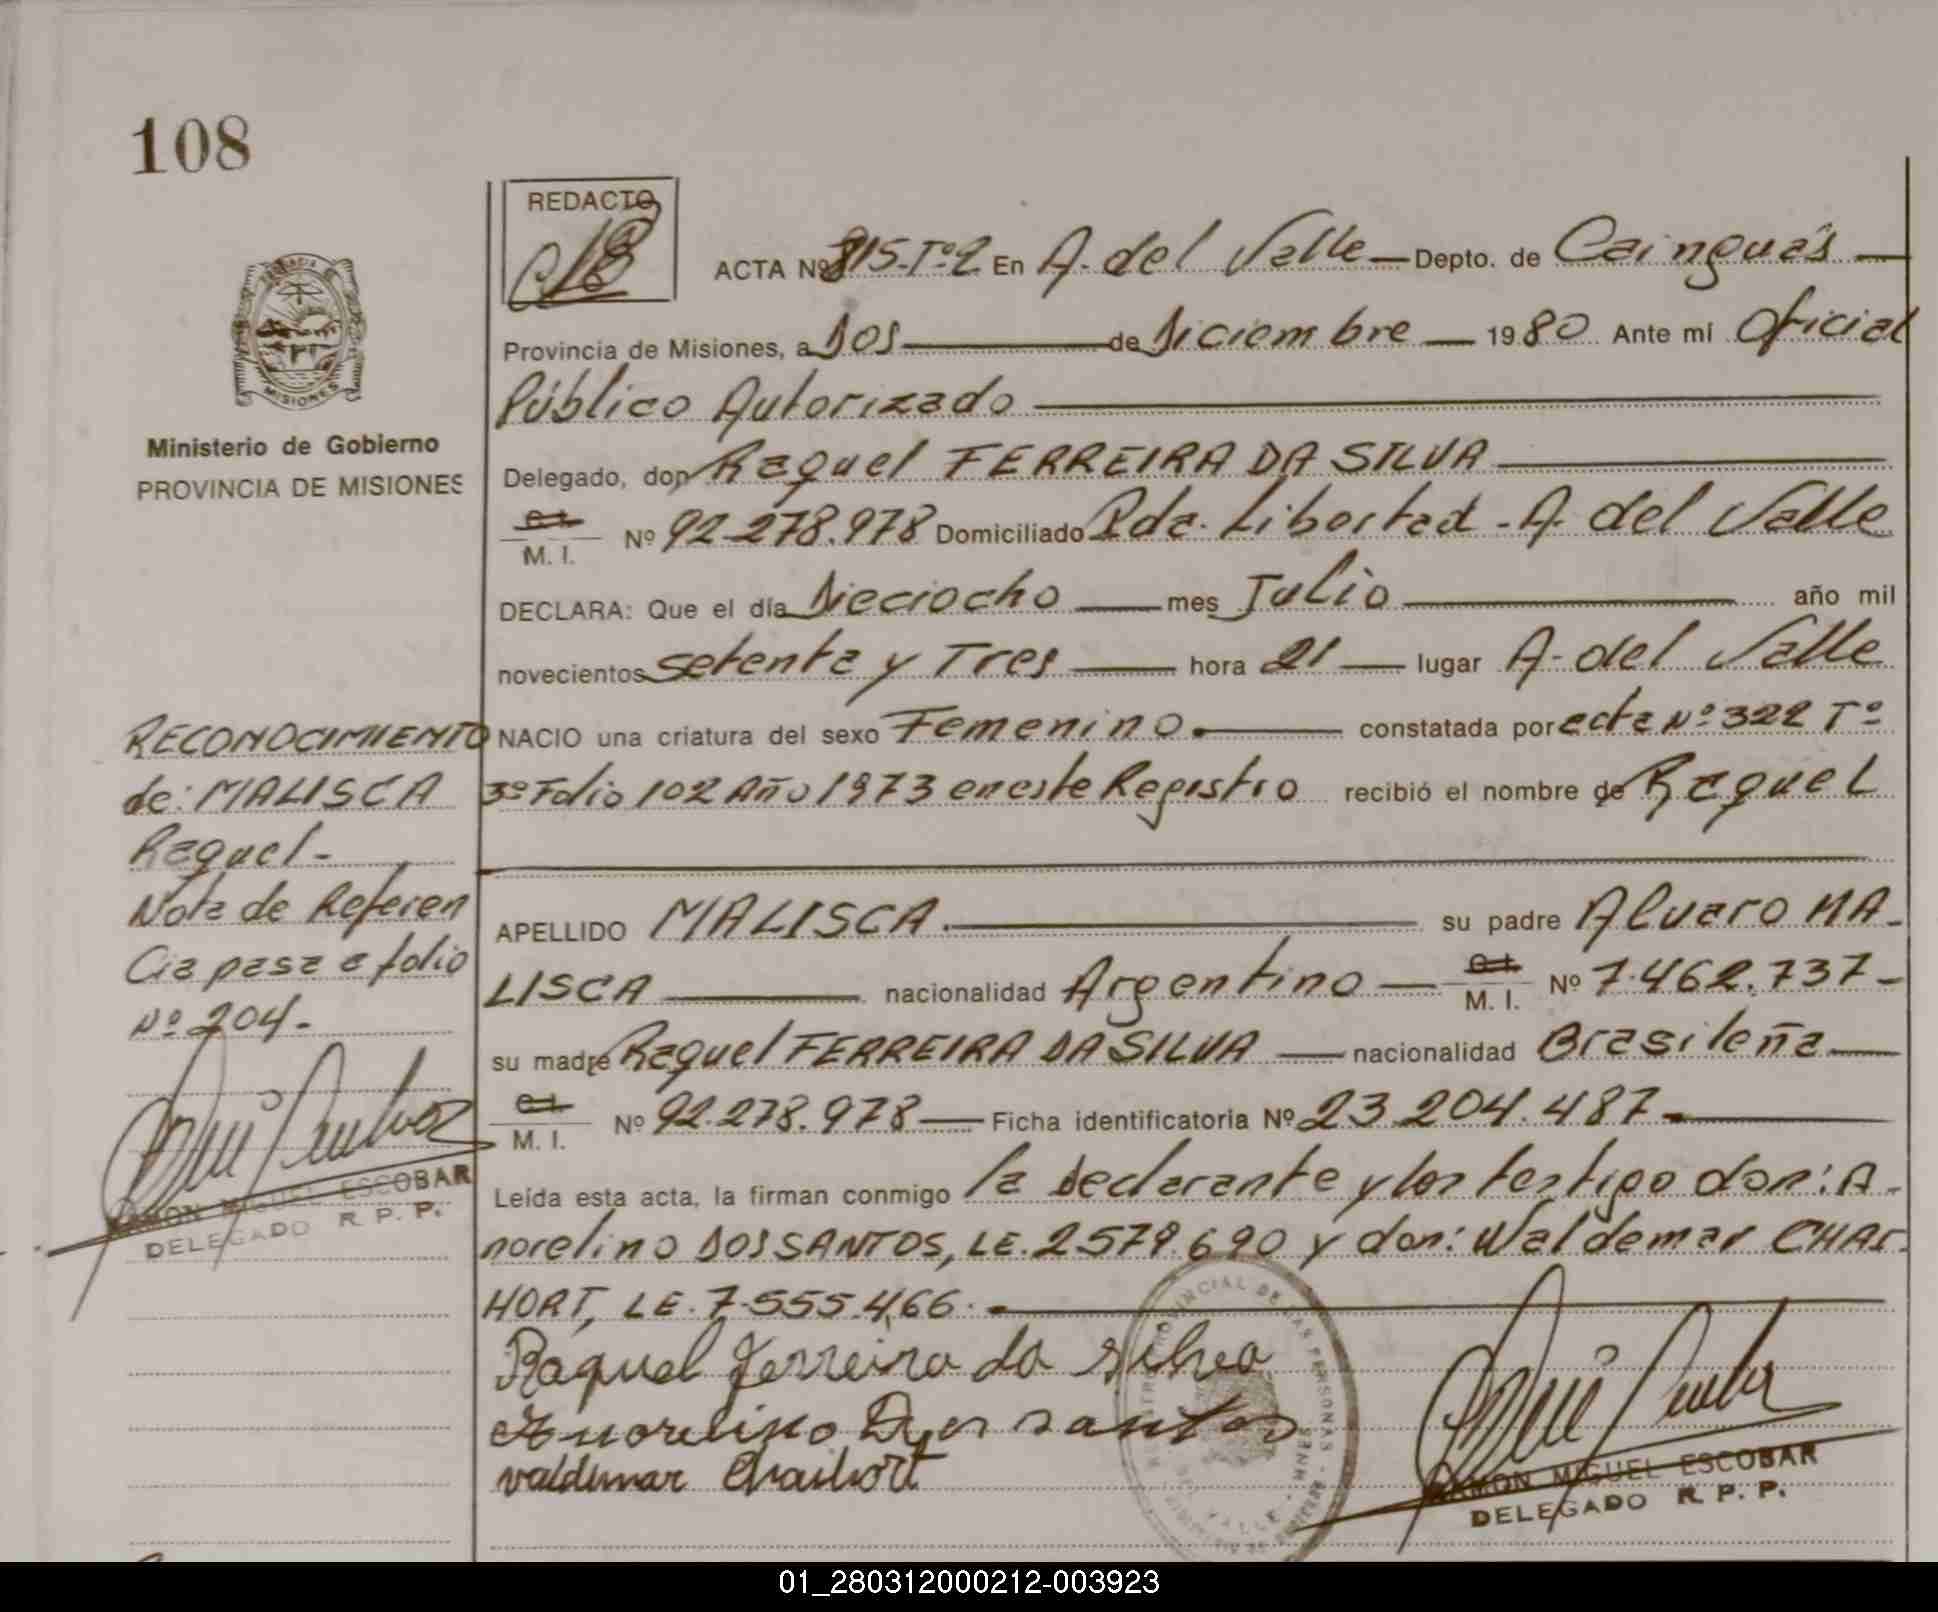 108
REDACTO
ACTA Nº 815-Tº2 En A. del Valle — Depto. de Cainguás —
Provincia de Misiones, a Dos — de Diciembre — 1980 Ante mi Oficial
Público Autorizado —
Ministerio de Gobierno
PROVINCIA DE MISIONES
Delegado, don Raquel FERREIRA DA SILVA —
M. I. Nº 92.278.978 Domiciliado Pda. Libertad - A. del Valle
DECLARA: Que el día Dieciocho — mes Julio — año mil
novecientos setenta y Tres — hora 21 — lugar A. del Valle
NACIO una criatura del sexo Femenino. — constatada por acta Nº 322 Tº
3º Folio 102 Año 1973 en este Registro recibió el nombre de Raquel
APELLIDO MALISCA. — su padre Alvaro MA-
LISCA — nacionalidad Argentino — M. I. Nº 7.462.737-
su madre Raquel FERREIRA DA SILVA — nacionalidad Brasileña —
M. I. Nº 92.278.978 — Ficha identificatoria Nº 23.204.487-
Leída esta acta, la firman conmigo la Declarante y los testigo don: A-
norelino DOS SANTOS, LE. 2579.690 y don: Waldemar CHAR-
HORT, LE. 7.555.466. —
Raquel Ferreira da Silva
Anorelino Dos santos
valdemar
RAMON MIGUEL ESCOBAR
DELEGADO R. P. P.
RECONOCIMIENTO
de: MALISCA
Raquel -
Nota de Referen
Cia pasa a folio
Nº 204-
RAMON MIGUEL ESCOBAR
DELEGADO R. P. P.
MISIONES
01_280312000212-003923